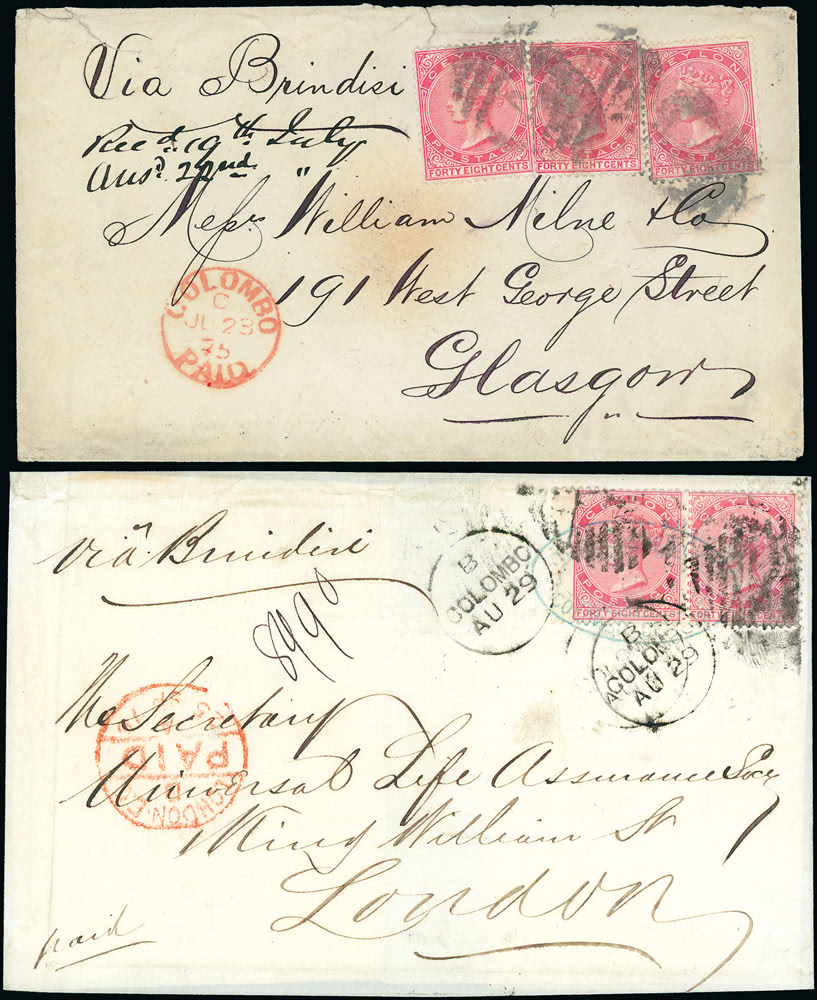 Via Brindisi
Recd. 19th July
Ansd. 22nd "
CEYLON
POSTAGE
FORTY EIGHT CENTS
CEYLON
POSTAGE
FORTY EIGHT CENTS
CEYLON
POSTAGE
FORTY EIGHT CENTS
Messrs William Milne & Co
191 West George Street
Glasgow
COLOMBO
C
JU 23
75
PAID
via Brindisi
8990
B
COLOMBO
AU 29
CEYLON
POSTAGE
FORTY EIGHT CENTS
CEYLON
POSTAGE
FORTY EIGHT CENTS
B
COLOMBO
AU 29
The Secretary
Universal Life Assurance Socy
King William St
London
LONDON
PAID
paid